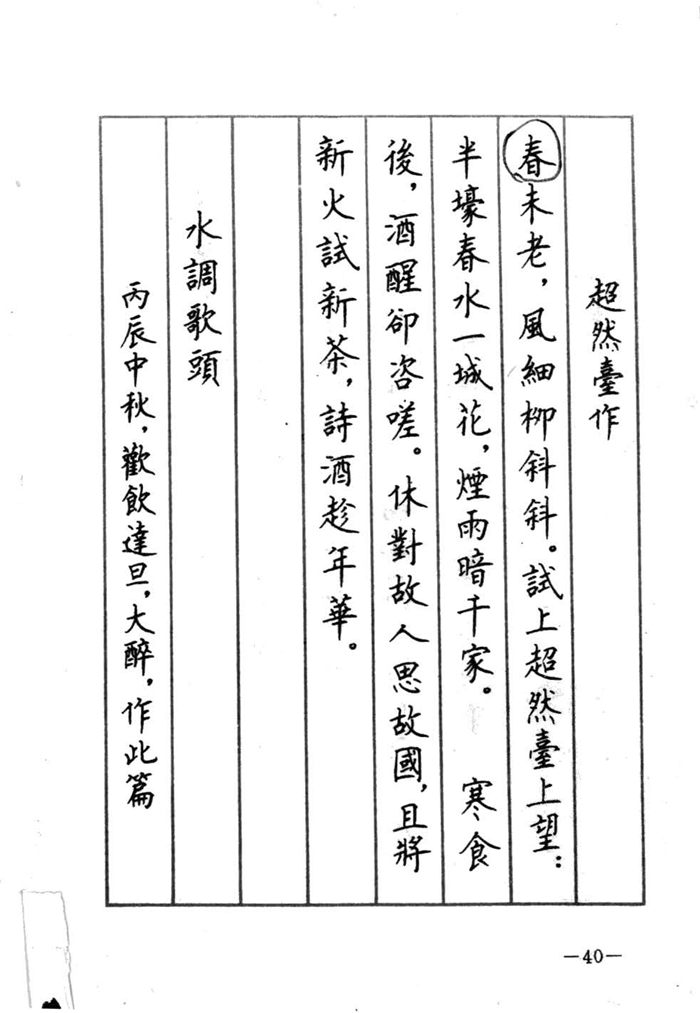 超然臺作
春未老，風細柳斜斜。試上超然臺上望：
半壕春水一城花，煙雨暗千家。　寒食
後，酒醒卻咨嗟。休對故人思故國，且將
新火試新茶，詩酒趁年華。
水調歌頭
丙辰中秋，歡飲達旦，大醉，作此篇
—40—